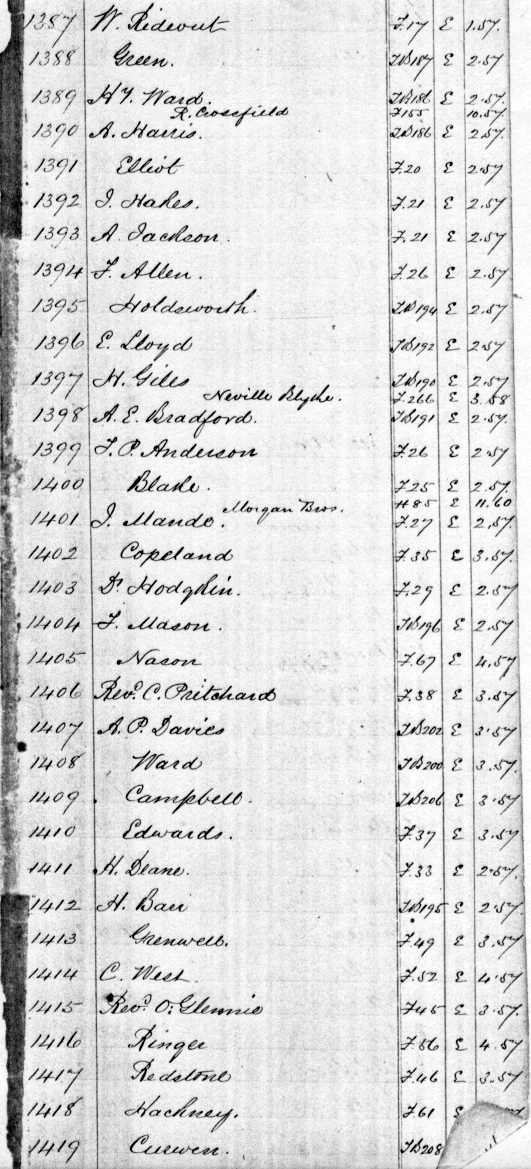 1387 W. Rideout F.17 E 1.57.
1388 Green. TB187 E 2.57
1389 Hy. Ward. TB186 E 2.57.
R. Crosefield F155 10.57.
1390 A. Harris. TB186 E 2.57.
1391 Elliot F.20 E 2.57
1392 J. Hakes. F.21 E 2.57.
1393 A. Jackson. F.21 E 2.57.
1394 F. Allen. F.26 E 2.57.
1395 Holdsworth. TB194 E 2.57
1396 E. Lloyd TB192 E 2.57
1397 H. Giles TB190 E 2.57
Neville Blythe. F.266 E 3.58
1398 A. E. Bradford. TB191 E 2.57.
1399 F. P. Anderson F.26 E 2.57
1400 Blake. F.25 E 2.57.
Morgan Bros. H85 E 11.60
1401 J. Mando. F.27 E 2.57.
1402 Copeland F.35 E 3.57.
1403 Dr Hodgkin. F.29 E 2.57
1404 F. Mason. TB196 E 2.57
1405 Nason F.67 E 4.57
1406 Revd. C. Pritchard F.38 E 3.57
1407 A. P. Davies TB202 E 3.57
1408 Ward TB200 E 3.57.
1409 Campbell. TB206 E 3.57
1410 Edwards. F.37 E 3.57
1411 H. Deane. F.33 E 2.57.
1412 H. Barr TB195 E 2.57
1413 Grenwell. F.49 E 3.57
1414 C. West. F.52 E 4.57
1415 Revd. O. Glennie F45 E 3.57.
1416 Ringer F.56 E 4.57
1417 Redstone F.46 E 3.57.
1418 Hackney. F.61 E
1419 Curwen. TB208